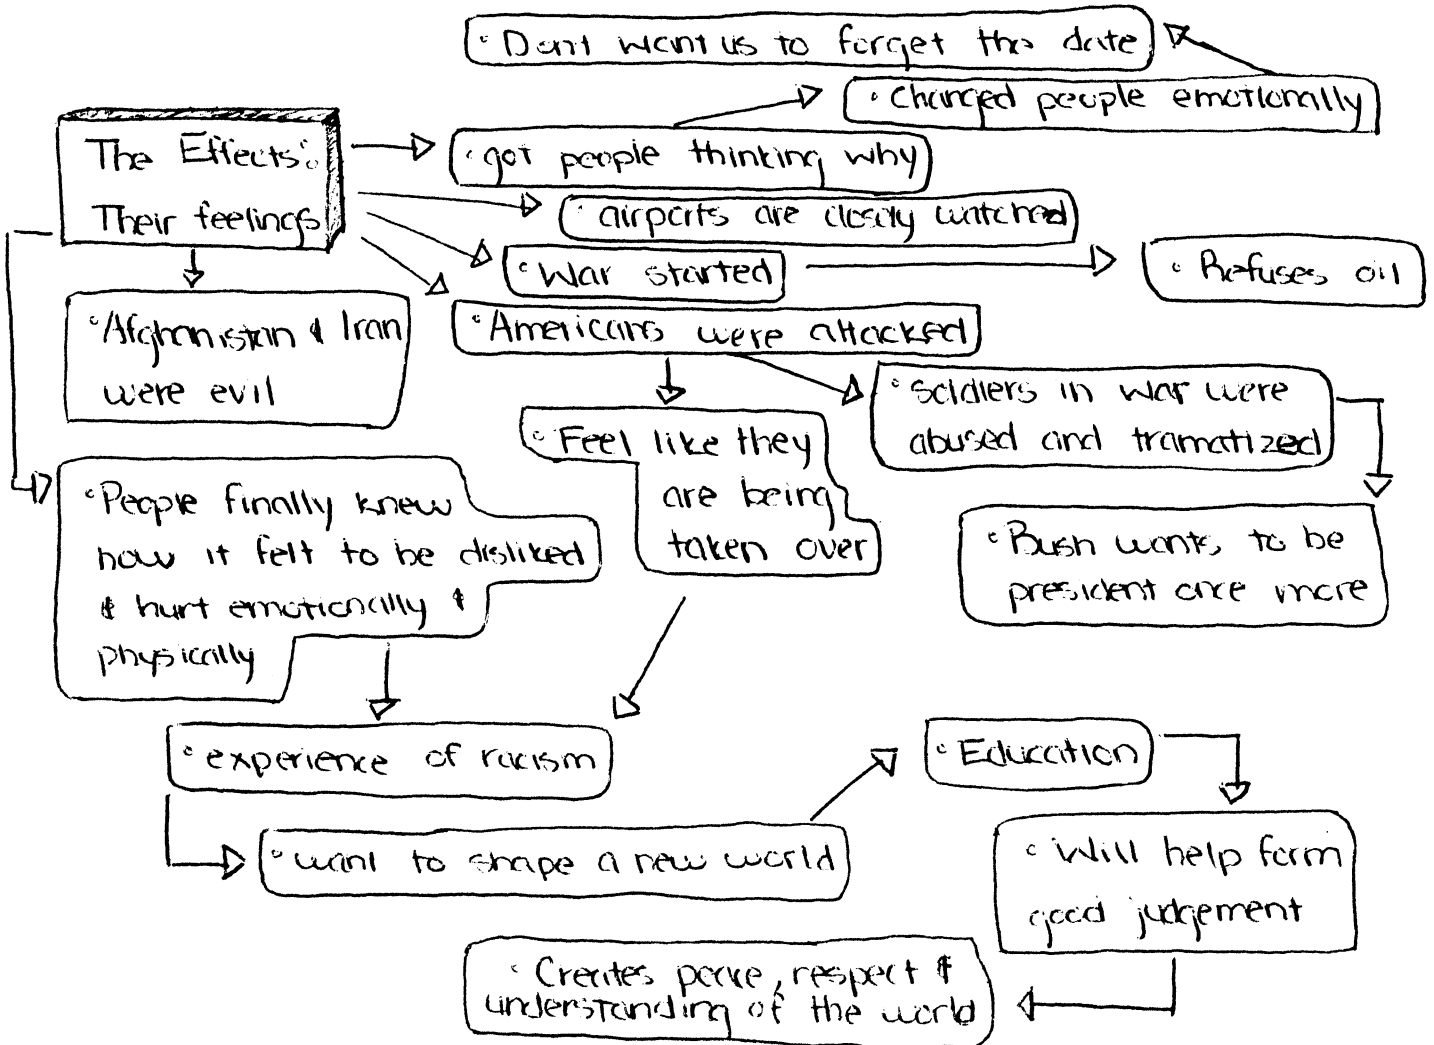 • Dont want us to forget the date
• Changed people emotionally
The Effects:
Their feelings
• got people thinking why
• airports are closily watched
• War started
• Refuses oil
• Afghanistan & Iran
were evil
• Americans were attacked
• Soldiers in war were
abused and tramatized
• Feel like they
are being
taken over
• People finally knew
how it felt to be disliked
& hurt emotionally &
physically
• Bush wants to be
president once more
• experience of racism
• Education
• want to shape a new world
• Will help form
good judgement
• Creates peace, respect &
understanding of the world